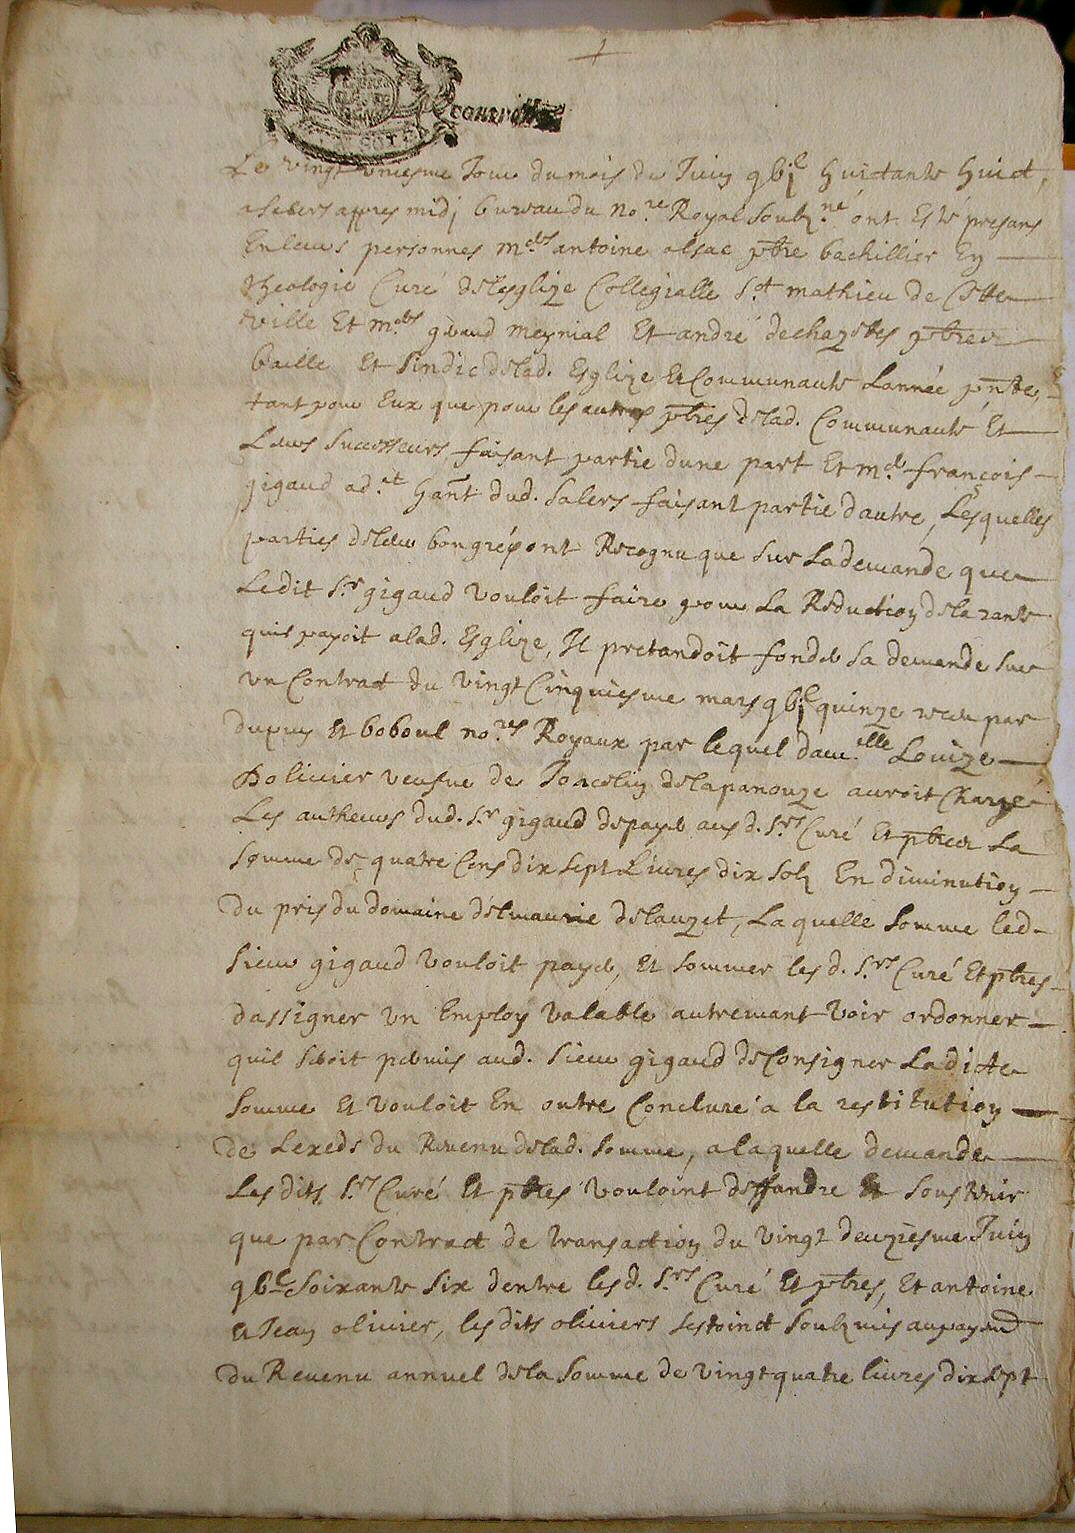 controlle
Le vingt uniesme Jour du mois de Juin xvi^c huictante huict,
a Salers appres midj bureau du no^re Royal soubz^né ont esté presans
En leurs personnes m^res antoine alsac p̅bre bachillier En
theologie Curé de lesglize Collegialle S^t mathieu de
ville Et m^res giraud meynial Et andré dechazettes p̅bres
baille Et sindic de lad. Esglize Et Communauté Lannée p̅nte,
tant pour Eux que pour les autres p̅bres de lad. Communauté Et
Leurs Successeurs, faisant partie dune part Et m^e françois
gigaud ad^at ha̅nt dud. Salers faisant partie dautre, Lesquelles
parties de leur bon gré, ont Recognu que sur La demande que
Ledit S^r gigaud vouloit faire pour La Reduction de la rante
quil payoit a lad. Esglize, Il pretandoit fonder sa demande sur
un Contract du vingt Cinquiesme mars xvi^c quinze receu par
dupuy Et boboul no^res Royaux par lequel dam^elle Louize
Dolivier veufve de Joncelin de lapanouze auroit Chargé
Les autheurs dud. S^r gigaud de payer aus d. S^rs Curé Et p̅bres La
Somme de quatre Cens dix sept Livres dix solz En diminution
du pris du domaine de lauzet, La quelle Somme led.
Sieur gigaud vouloit payer, Et sommer les d. S^rs Curé Et p̅bres
dassigner un Employ valable autremant voir ordonner
quil seroit permis aud. sieur gigaud de Consigner Ladite
somme Et vouloit En outre Conclure a la restitution
de Lexeds du Revenu de lad. somme, a laquelle demande
Les dits S^rs Curé Et p̅bres vouloint deffandre Et soustenir
que par Contract de transaction du vingt deuziesme Juin
xvi^c Soixante six dentre les d. S^rs Curé Et p̅bres, Et antoine
Et Jean olivier, les dits oliviers sestoint soubzmis au
du Revenu annuel de la Somme de vingt quatre livres dix sept